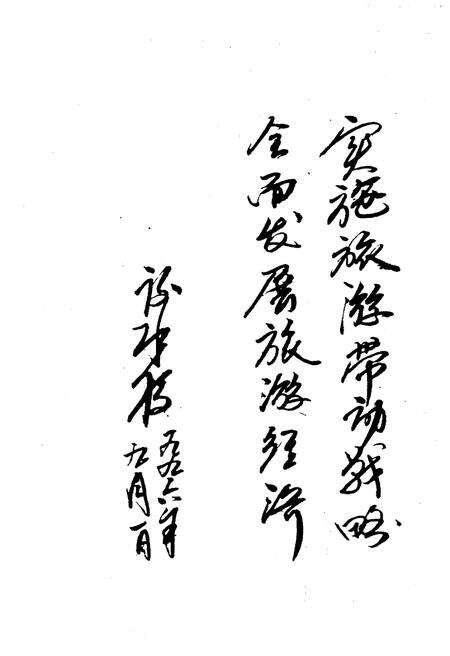 实施旅游带动战略
全面发展旅游经济
一九九六年
九月一日